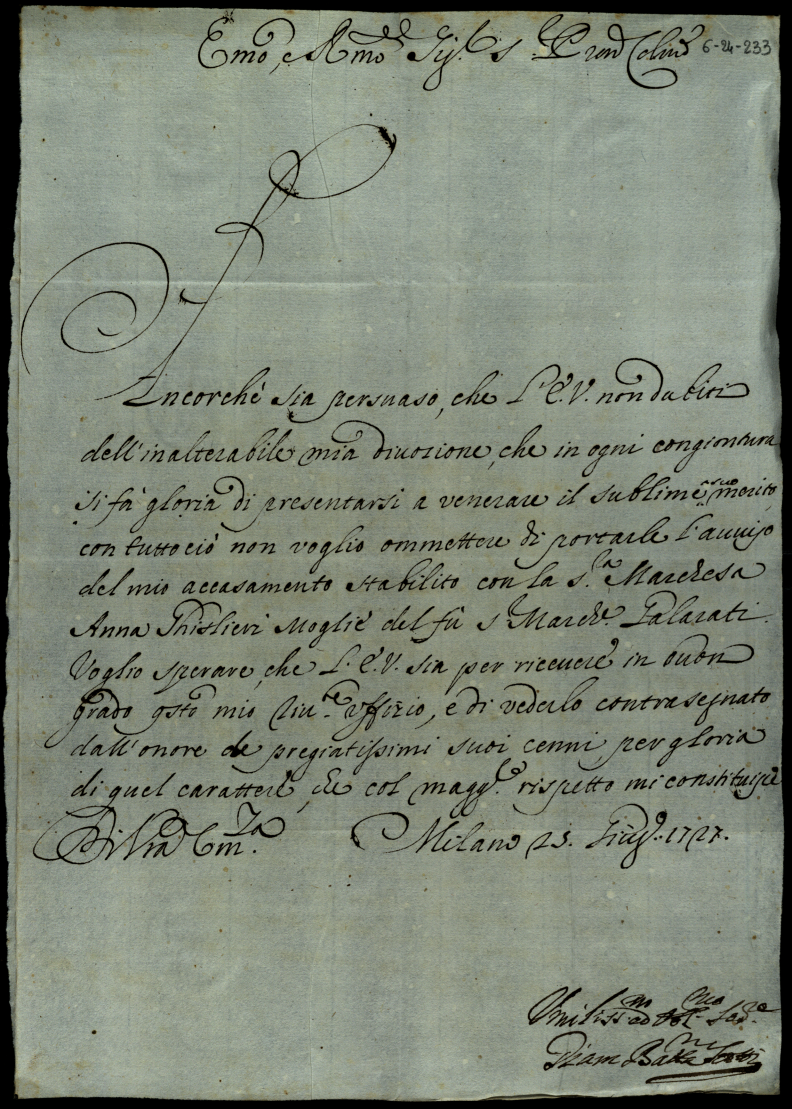 Emo, e Rmo Sig.r S.r P.ron Colmo 6-24-233
Ancorchè sia persuaso, che l'E.V. non dubiti
dell'inalterabile mia divozione, che in ogni congiontura
si fà gloria di presentarsi a venerare il sublime suo merito,
con tuttociò non voglio ommettere di portarle l'avviso
del mio accasamento stabilito con la S.ra Marchesa
Anna Ghislieri Moglie del fù S.r March.e Galarati.
Voglio sperare, che l'E.V. sia per ricevere in buon
grado gsto mio riv.te uffizio, e di vederlo contrasegnato
dall'onore de pregiatissimi suoi cenni, per gloria
di quel carattere, che col magg.re rispetto mi constituisce
Di Vra Em.za Milano 25. Giug.o 1727.
Umiliss.mo Ser.e
Giam Batta